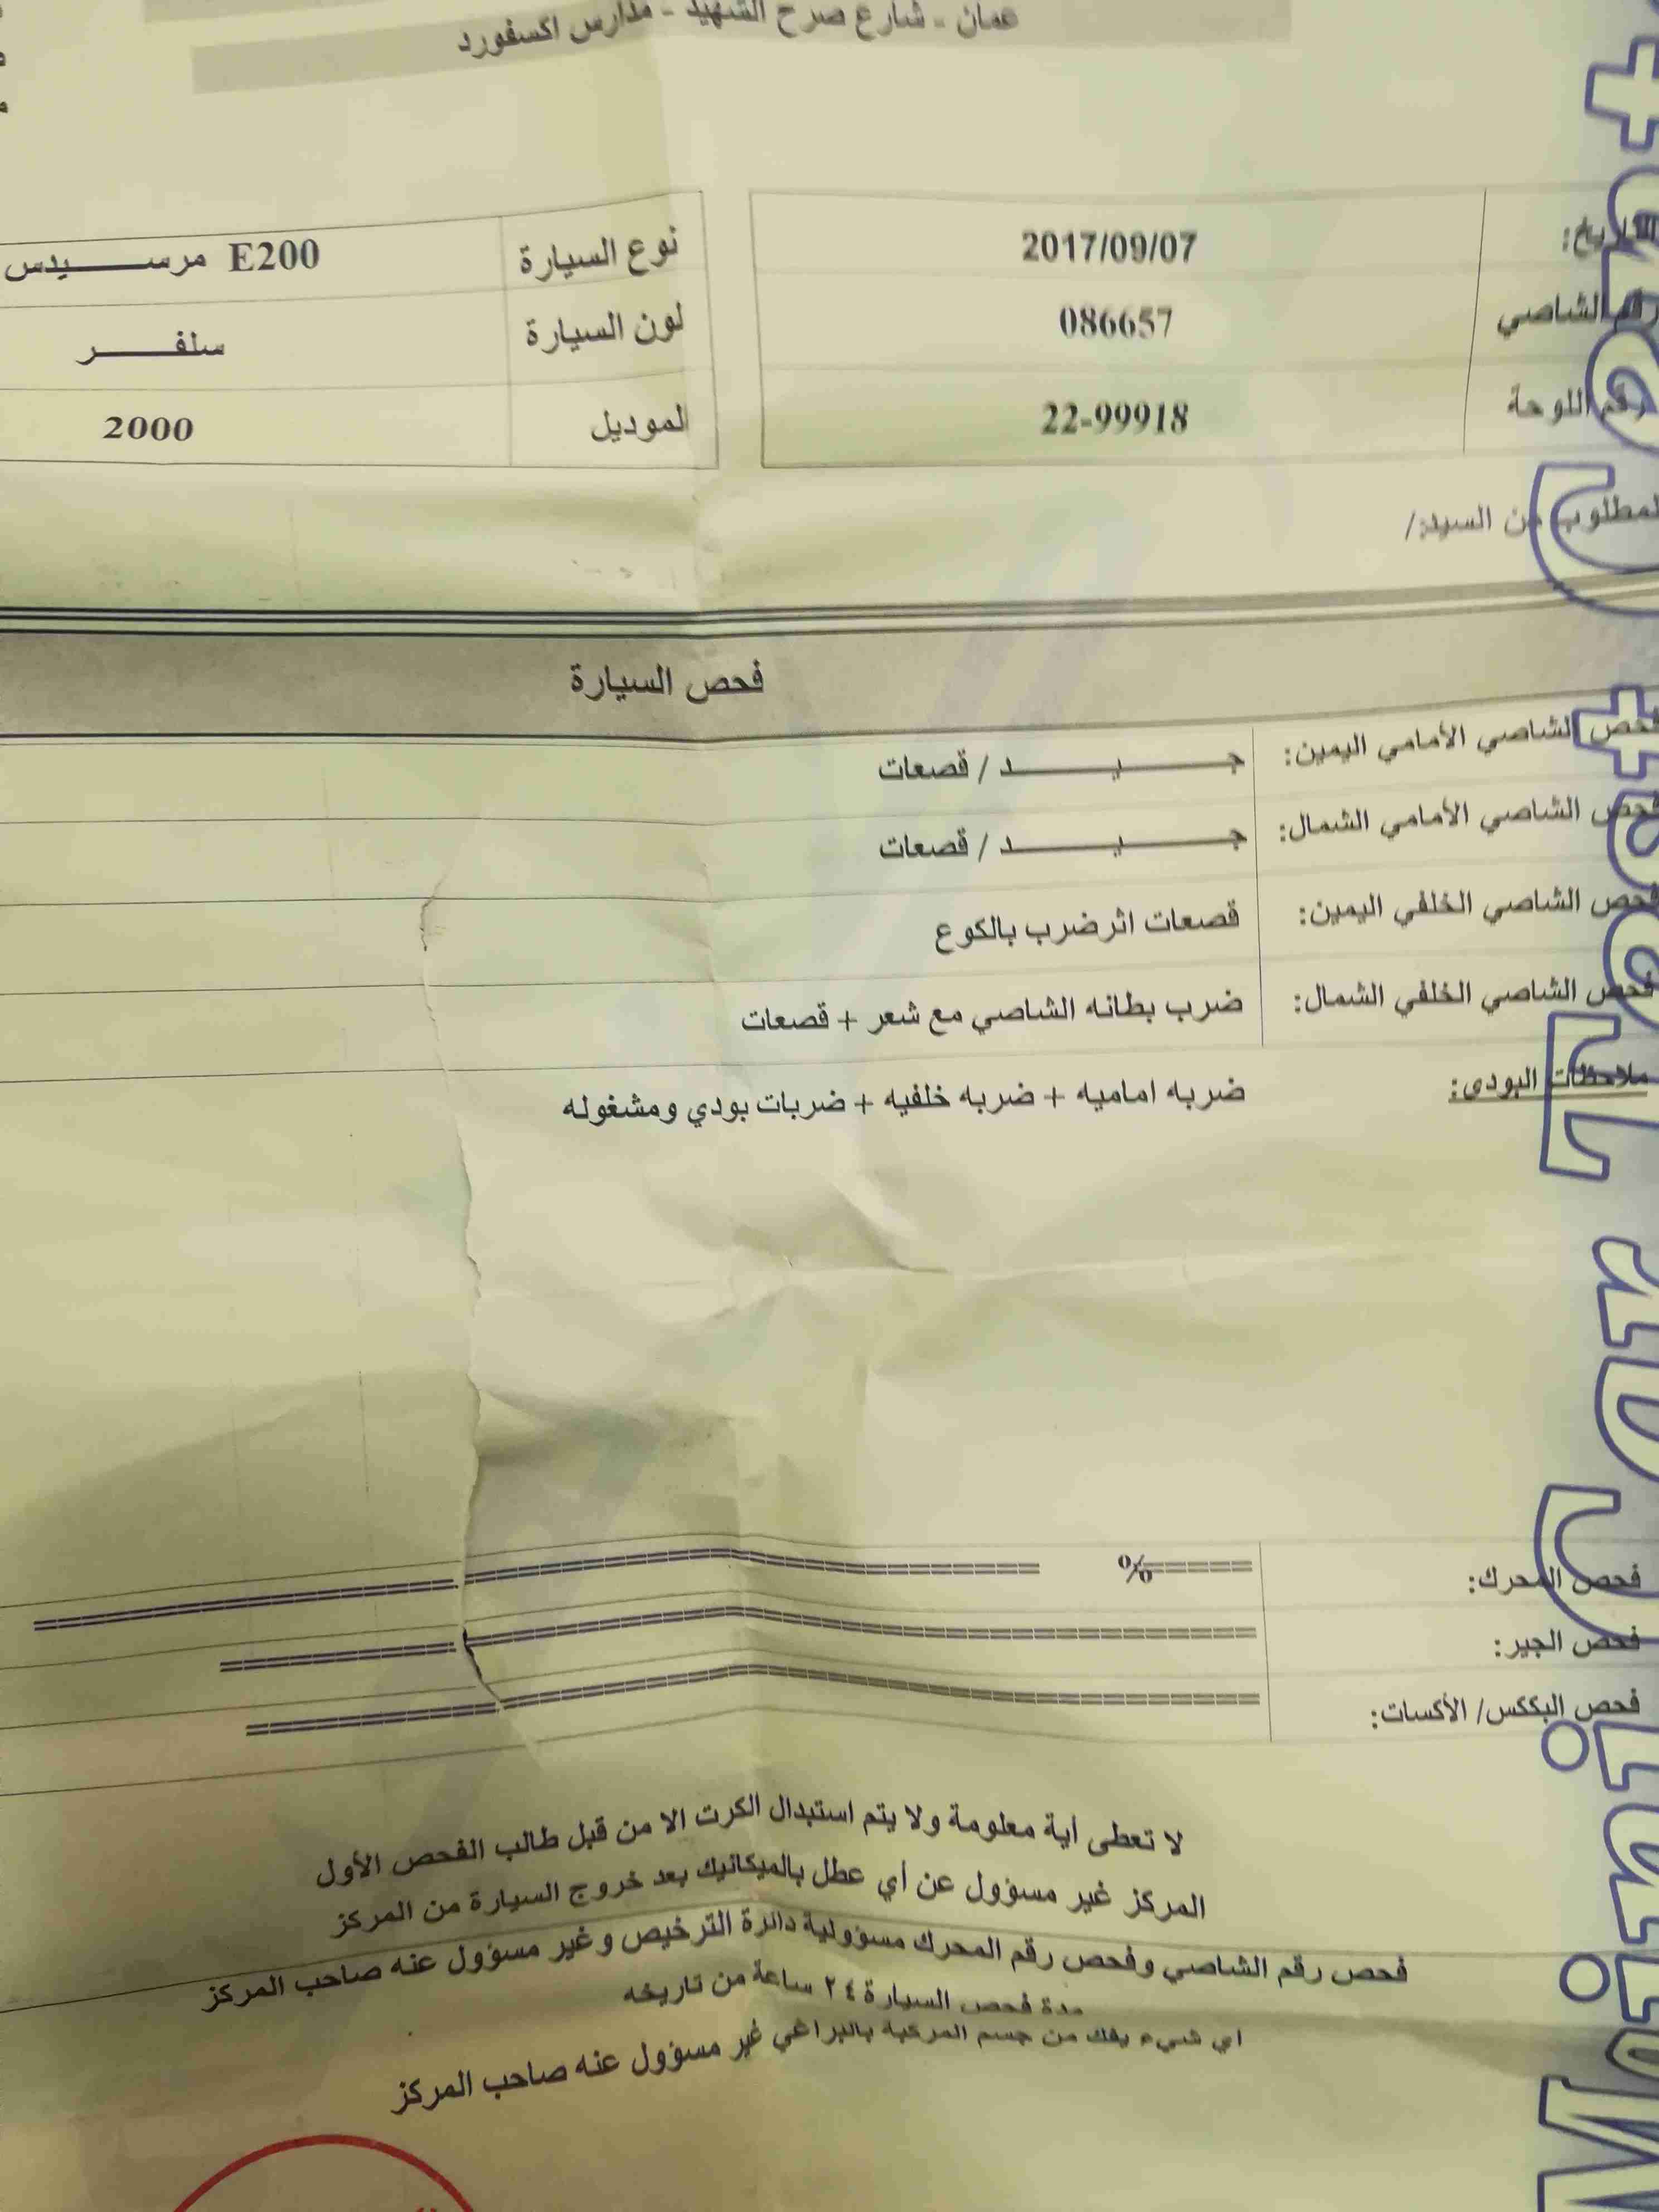 عمان - شارع صرح الشهيد - مدارس اكسفورد
التاريخ: 2017/09/07
نوع السيارة مرسيدس E200
رقم الشاصي 086657
لون السيارة سلفر
رقم اللوحة 22-99918
الموديل 2000
المطلوب من السيد/
فحص السيارة
فحص الشاصي الأمامي اليمين: جيد / قصعات
فحص الشاصي الأمامي الشمال: جيد / قصعات
فحص الشاصي الخلفي اليمين: قصعات اثر ضرب بالكوع
فحص الشاصي الخلفي الشمال: ضرب بطانه الشاصي مع شعر + قصعات
ملاحظات البودي: ضربه اماميه + ضربه خلفيه + ضربات بودي ومشغوله
فحص المحرك: ======%==================
فحص الجير: ==================
فحص البككس/ الأكسات: ==================
لا تعطى أية معلومة ولا يتم استبدال الكرت الا من قبل طالب الفحص الأول
المركز غير مسؤول عن أي عطل بالميكانيك بعد خروج السيارة من المركز
فحص رقم الشاصي وفحص رقم المحرك مسؤولية دائرة الترخيص وغير مسؤول عنه صاحب المركز
مدة فحص السيارة ٢٤ ساعة من تاريخه
اي شيء يفك من جسم المركبة بالبراغي غير مسؤول عنه صاحب المركز